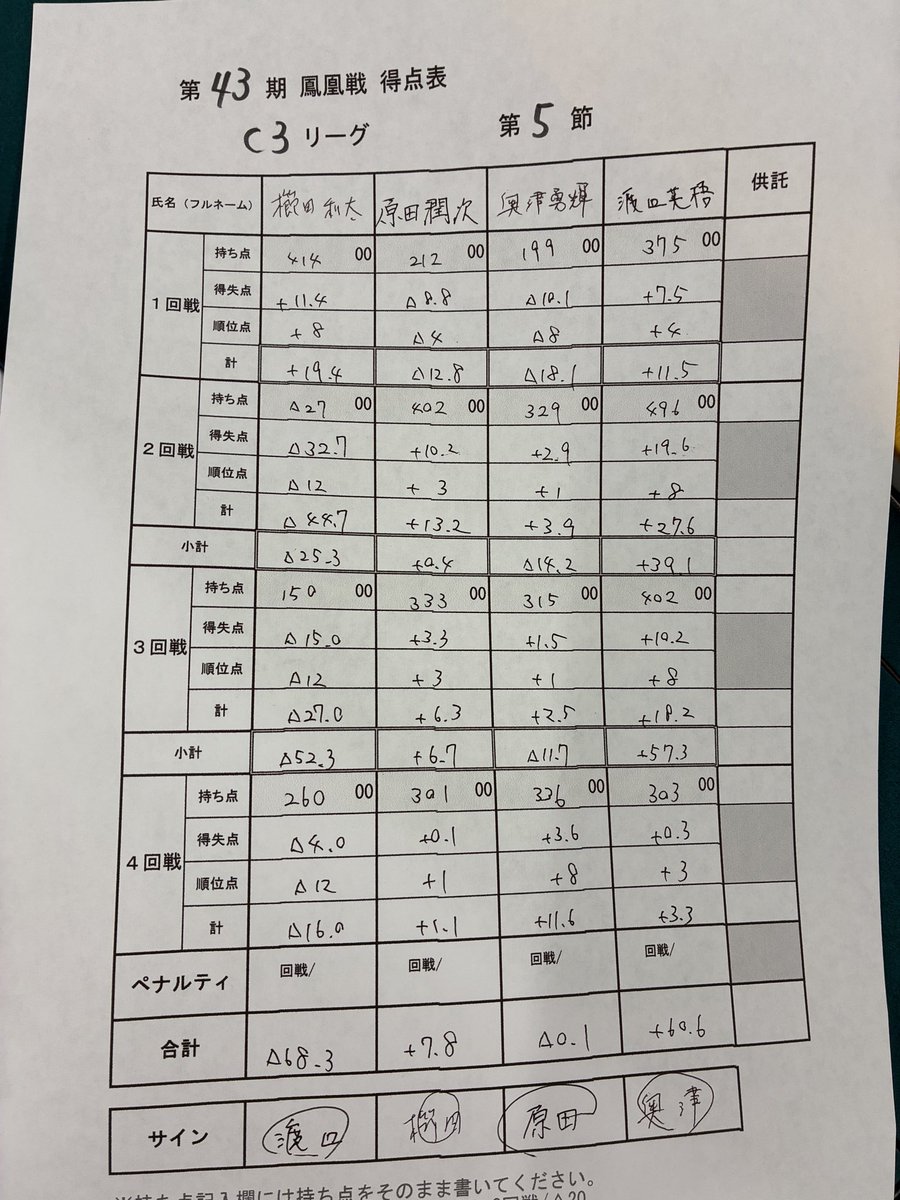 第 43 期 鳳凰戦 得点表
C3 リーグ 第 5 節
氏名（フルネーム） 櫛田利太 原田潤次 奥津勇輝 渡口英梧 供託
1回戦
持ち点 414 00 212 00 199 00 375 00
得失点 +11.4 △8.8 △10.1 +7.5
順位点 +8 △4 △8 +4
計 +19.4 △12.8 △18.1 +11.5
2回戦
持ち点 △27 00 402 00 329 00 496 00
得失点 △32.7 +10.2 +2.9 +19.6
順位点 △12 +3 +1 +8
計 △44.7 +13.2 +3.9 +27.6
小計 △25.3 +0.4 △14.2 +39.1
3回戦
持ち点 150 00 333 00 315 00 402 00
得失点 △15.0 +3.3 +1.5 +10.2
順位点 △12 +3 +1 +8
計 △27.0 +6.3 +2.5 +18.2
小計 △52.3 +6.7 △11.7 +57.3
4回戦
持ち点 260 00 301 00 336 00 303 00
得失点 △4.0 +0.1 +3.6 +0.3
順位点 △12 +1 +8 +3
計 △16.0 +1.1 +11.6 +3.3
ペナルティ 回戦/ 回戦/ 回戦/ 回戦/
合計 △68.3 +7.8 △0.1 +60.6
サイン 渡口 櫛田 原田 奥津
※持ち点記入欄には持ち点をそのまま書いてください。
回戦/△20